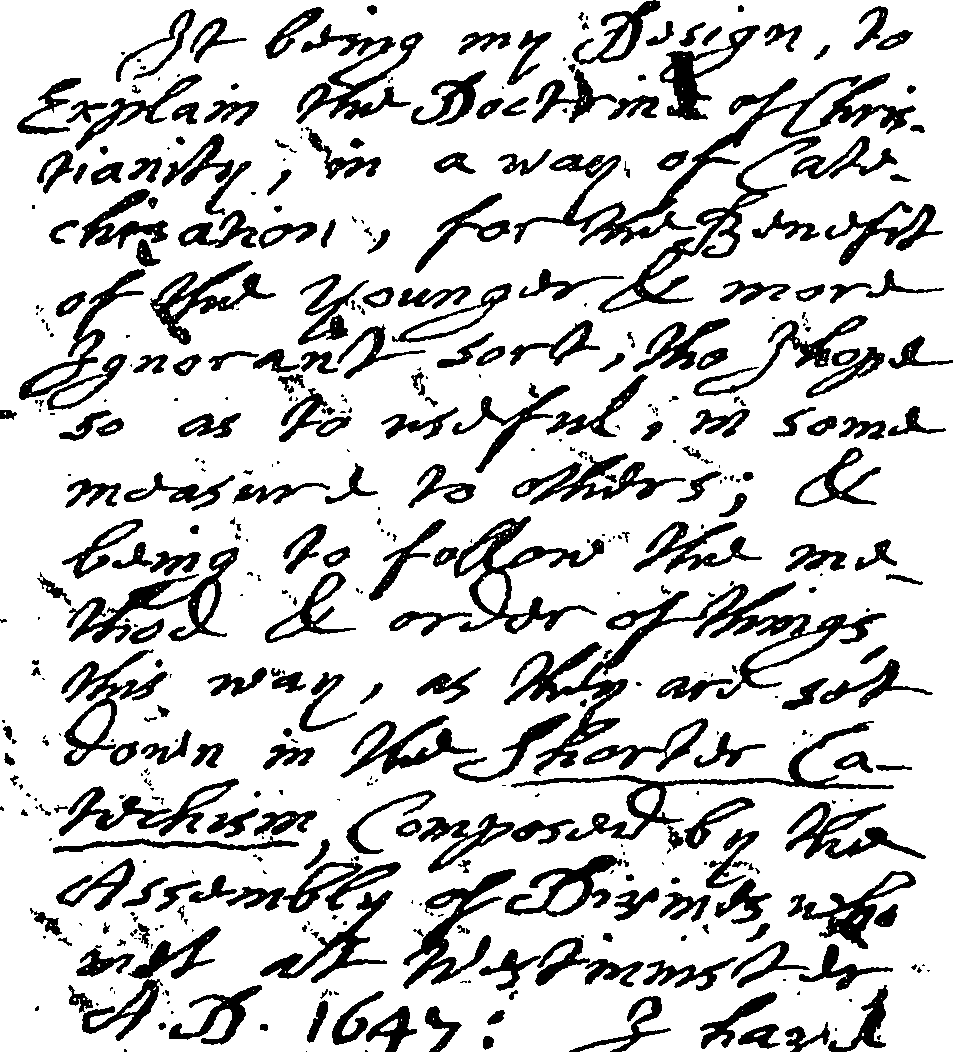 It being my Design, to
Explain the Doctrine of Chris-
tianity, in a way of Cate-
chisation, for the Benefit
of the younger & more
Ignorant sort, tho I hope
so as to useful, in some
measure to others; &
being to follow the me-
thod & order of things,
this way, as they are set
down in the Shorter Ca-
techism, Composed by the
Assembly of Divines, who
met at Westminster
A.D. 1647: I have